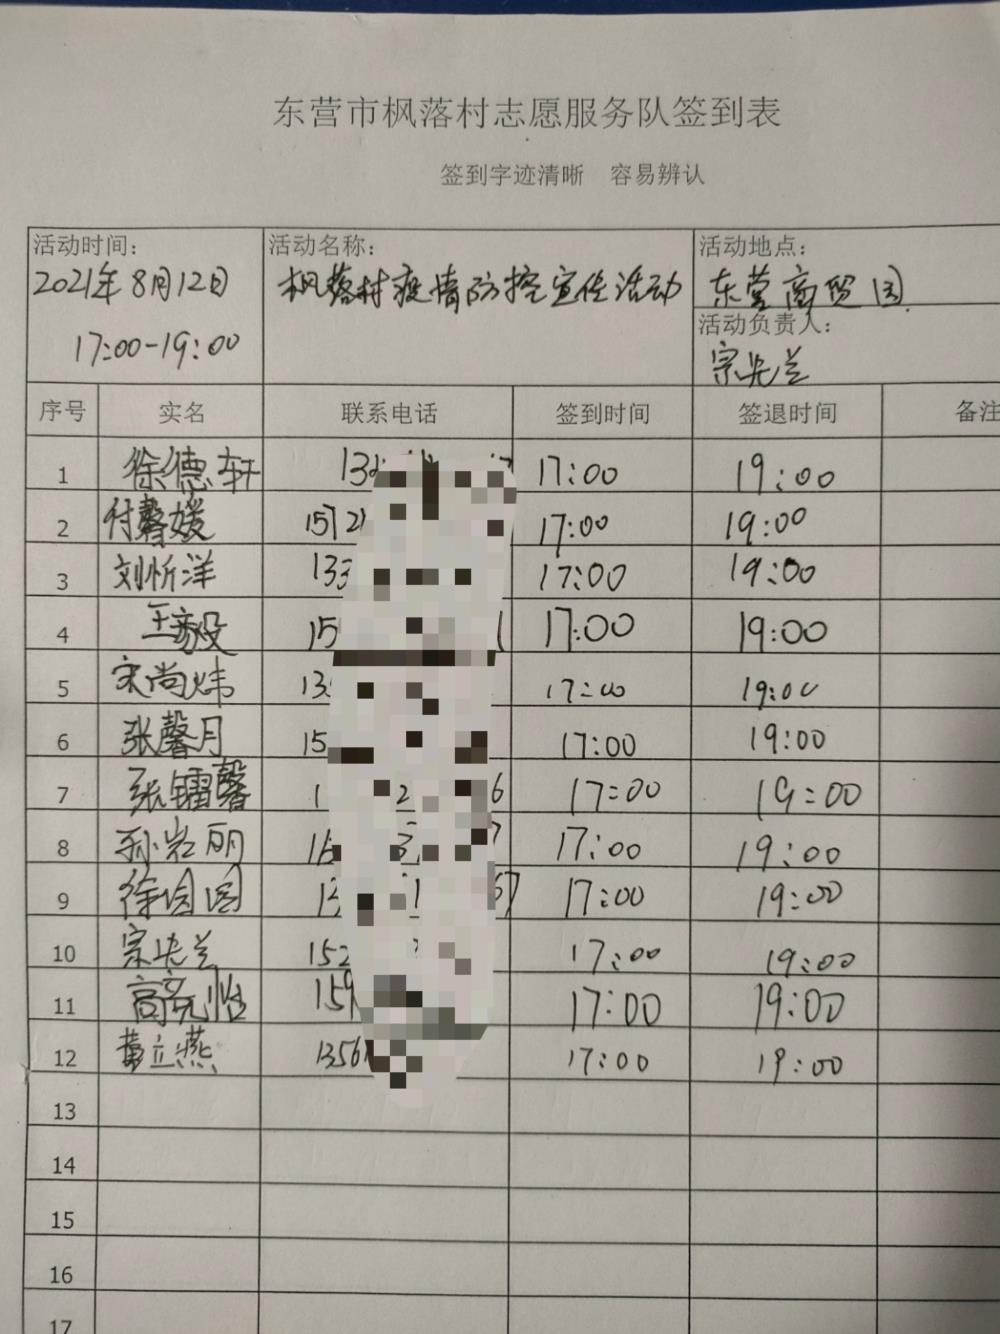 东营市枫落村志愿服务队签到表
签到字迹清晰 容易辨认
活动时间: 活动名称: 活动地点:
2021年8月12日 枫落村疫情防控宣传活动 东营商贸园
17:00-19:00 活动负责人:
宗央兰
序号 实名 联系电话 签到时间 签退时间 备注
1 徐德轩 17:00 19:00
2 付馨媛 15721 17:00 19:00
3 刘忻洋 133 17:00 19:00
4 王毅 15 17:00 19:00
5 宋尚炜 17:00 19:00
6 张馨月 15 17:00 19:00
7 张镭馨 1 2 6 17:00 19:00
8 孙岩丽 17:00 19:00
9 徐园园 17:00 19:00
10 宗央兰 152 17:00 19:00
11 高亮 159 17:00 19:00
12 立燕 1356 17:00 19:00
13
14
15
16
17